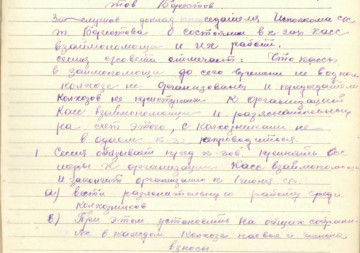 тов Бурмотов
Заслушав доклад председателя Исполкома со
т. Бурмотова о состоянии в к-зах касс
взаимопомощи и их работе.
сессия с/совета отмечает. Что кассы
взаимопомощи до сего времени не в одном
колхозе не организованы и председатели
колхозов не приступили к организации
касс взаимопомощи и разъяснительную
на счет этого, с колхозниками не
в одном к-зе не проводится.
1. Сессия обязывает пред к-зов принять все
меры к организации касс взаимопомощи
и закончить организацию к
а) вести разъяснительную работу среди
колхозников
в) При этом установить на общих собрани-
ях в каждом колхозе паевые и членские
взносы.